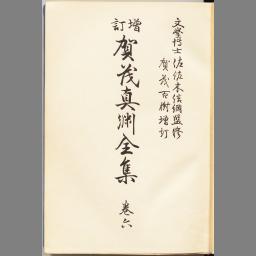 文學博士 佐佐木信綱監修
賀茂百樹增訂
增訂
賀茂真淵全集
卷六